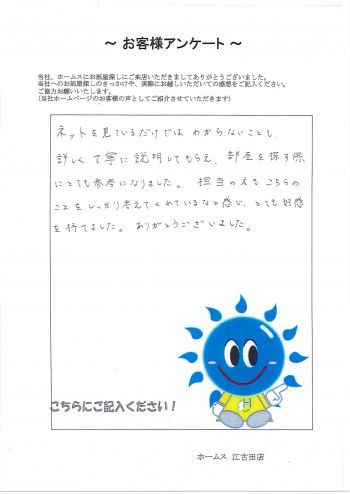 ～ お客様アンケート ～
当社、ホームスにお部屋探しにご来店いただきましてありがとうございました。
当社へのお部屋探しのきっかけや、実際にお越しいただいての感想をご記入ください。
ご協力お願いいたします。
(当社ホームページのお客様の声としてご紹介させていただきます)
ネットを見ているだけでは わからないことも、
詳しく丁寧に説明してもらえ、部屋を探す際
にとても参考になりました。 担当の方もこちらの
ことをしっかり考えてくれているなと感じ、とても好感
を持てました。 ありがとうございました。
H
こちらにご記入ください！
ホームス 江古田店